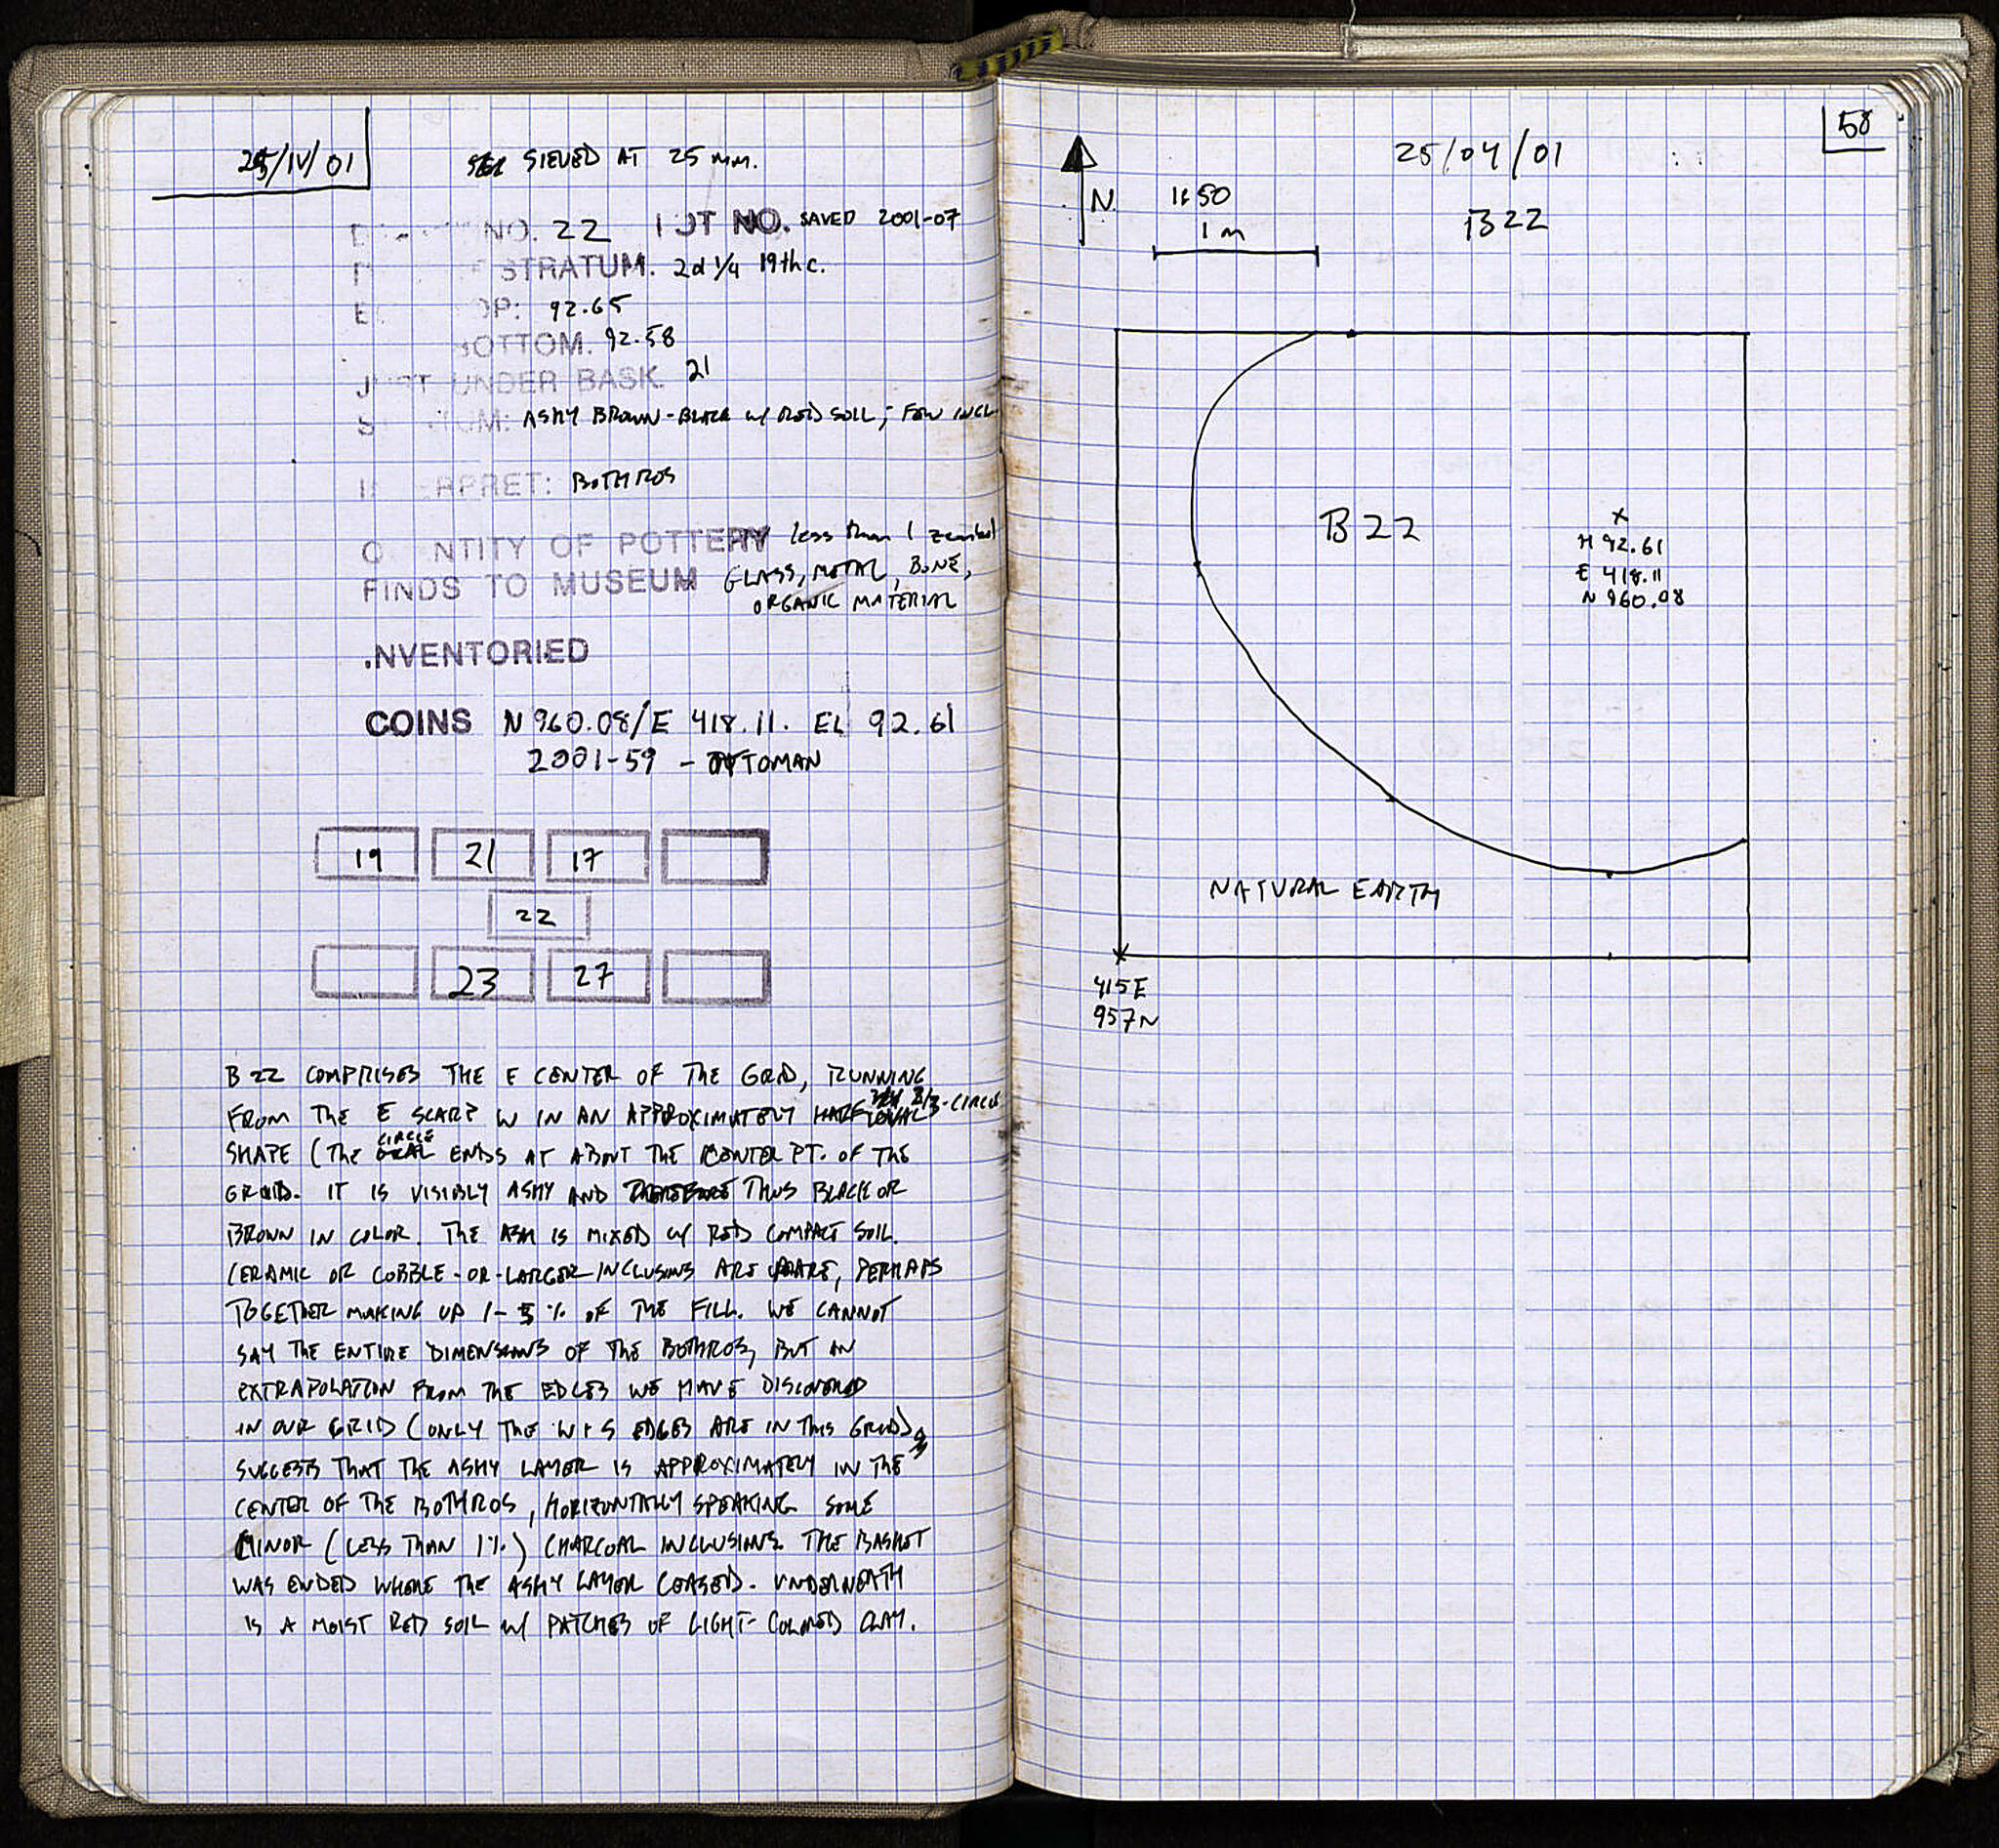 25/IV/01
SIEVED AT 25 mm.
NO. 22 LOT NO. SAVED 2001-07
STRATUM. 2d 1/4 19th c.
OP: 92.65
BOTTOM. 92.58
JUST UNDER BASK. 21
UM: ASHY BROWN-BLACK w/ RED SOIL; FEW INCL
INTERPRET: BOTHROS
QUANTITY OF POTTERY less than 1 zembil
FINDS TO MUSEUM GLASS, METAL, BONE,
ORGANIC MATERIAL
.NVENTORIED
COINS N 960.08/E 418.11. EL 92.61
2001-59 - OTTOMAN
19 21 17
22
23 27
B 22 COMPRISES THE E CENTER OF THE GRID, RUNNING
FROM THE E SCARP W IN AN APPROXIMATELY 2/3-CIRCLE
SHAPE (THE CIRCLE ENDS AT ABOUT THE CENTER PT. OF THE
GRID. IT IS VISIBLY ASHY AND THEREFORE THUS BLACK OR
BROWN IN COLOR. THE ASH IS MIXED w/ RED COMPACT SOIL.
CERAMIC OR COBBLE-OR-LARGER-INCLUSIONS ARE RARE, PERHAPS
TOGETHER MAKING UP 1-5% OF THE FILL. WE CANNOT
SAY THE ENTIRE DIMENSIONS OF THE BOTHROS, BUT AN
EXTRAPOLATION FROM THE EDGES WE HAVE DISCOVERED
IN OUR GRID (ONLY THE W + S EDGES ARE IN THIS GRID)
SUGGESTS THAT THE ASHY LAYER IS APPROXIMATELY IN THE
CENTER OF THE BOTHROS, HORIZONTALLY SPEAKING. SOME
MINOR (LESS THAN 1%) CHARCOAL INCLUSIONS. THE BASKET
WAS ENDED WHERE THE ASHY LAYER CEASED. UNDERNEATH
IS A MOIST RED SOIL w/ PATCHES OF LIGHT-COLORED CLAY.
58
25/04/01
N
1:50
B22
1 m
B 22
X
H 92.61
E 418.11
N 960.08
NATURAL EARTH
415E
957N